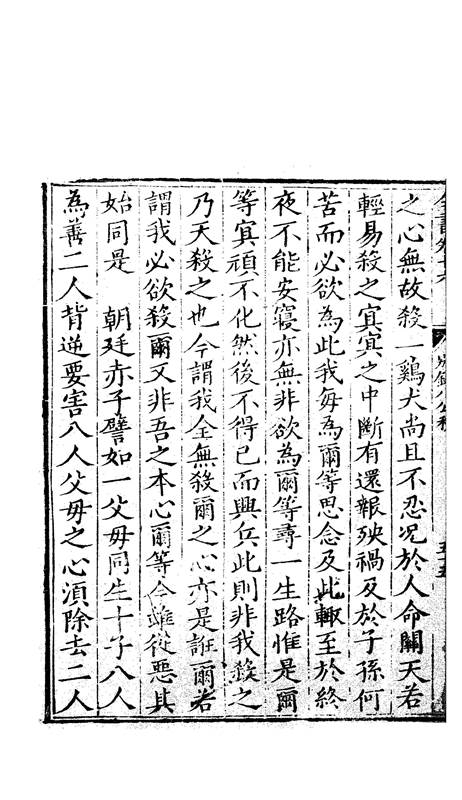 之心無故殺一鷄犬尚且不忍况於人命關天若
輕易殺之冥冥之中斷有還報殃禍及於子孫何
苦而必欲為此我每為爾等思念及此輒至於終
夜不能安寢亦無非欲為爾等尋一生路惟是爾
等冥頑不化然後不得已而興兵此則非我殺之
乃天殺之也今謂我全無殺爾之心亦是誑爾若
謂我必欲殺爾又非吾之本心爾等今雖從惡其
始同是　朝廷赤子譬如一父毋同生十子八人
為善二人背逆要害八人父毋之心湏除去二人